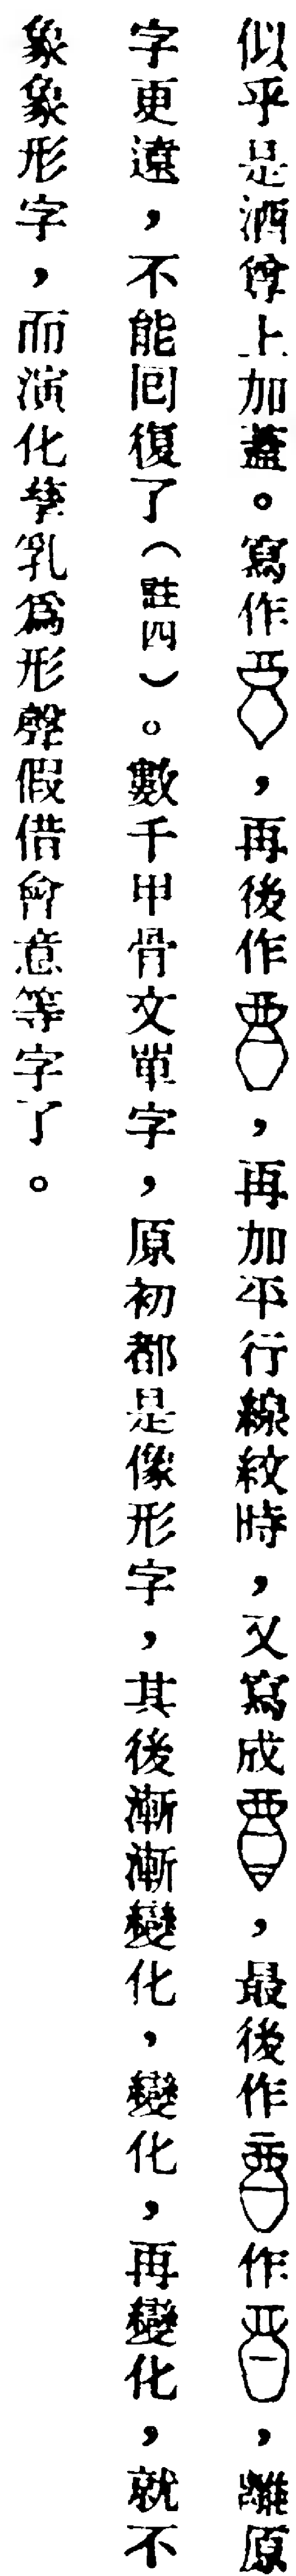 似乎是酒尊上加蓋。寫作，再後作，再加平行線紋時，又寫成，最後作作，離原
字更遠，不能回復了（註四）。數千甲骨文單字，原初都是像形字，其後漸漸變化，變化，再變化，就不
象象形字，而演化孳乳爲形聲假借會意等字了。